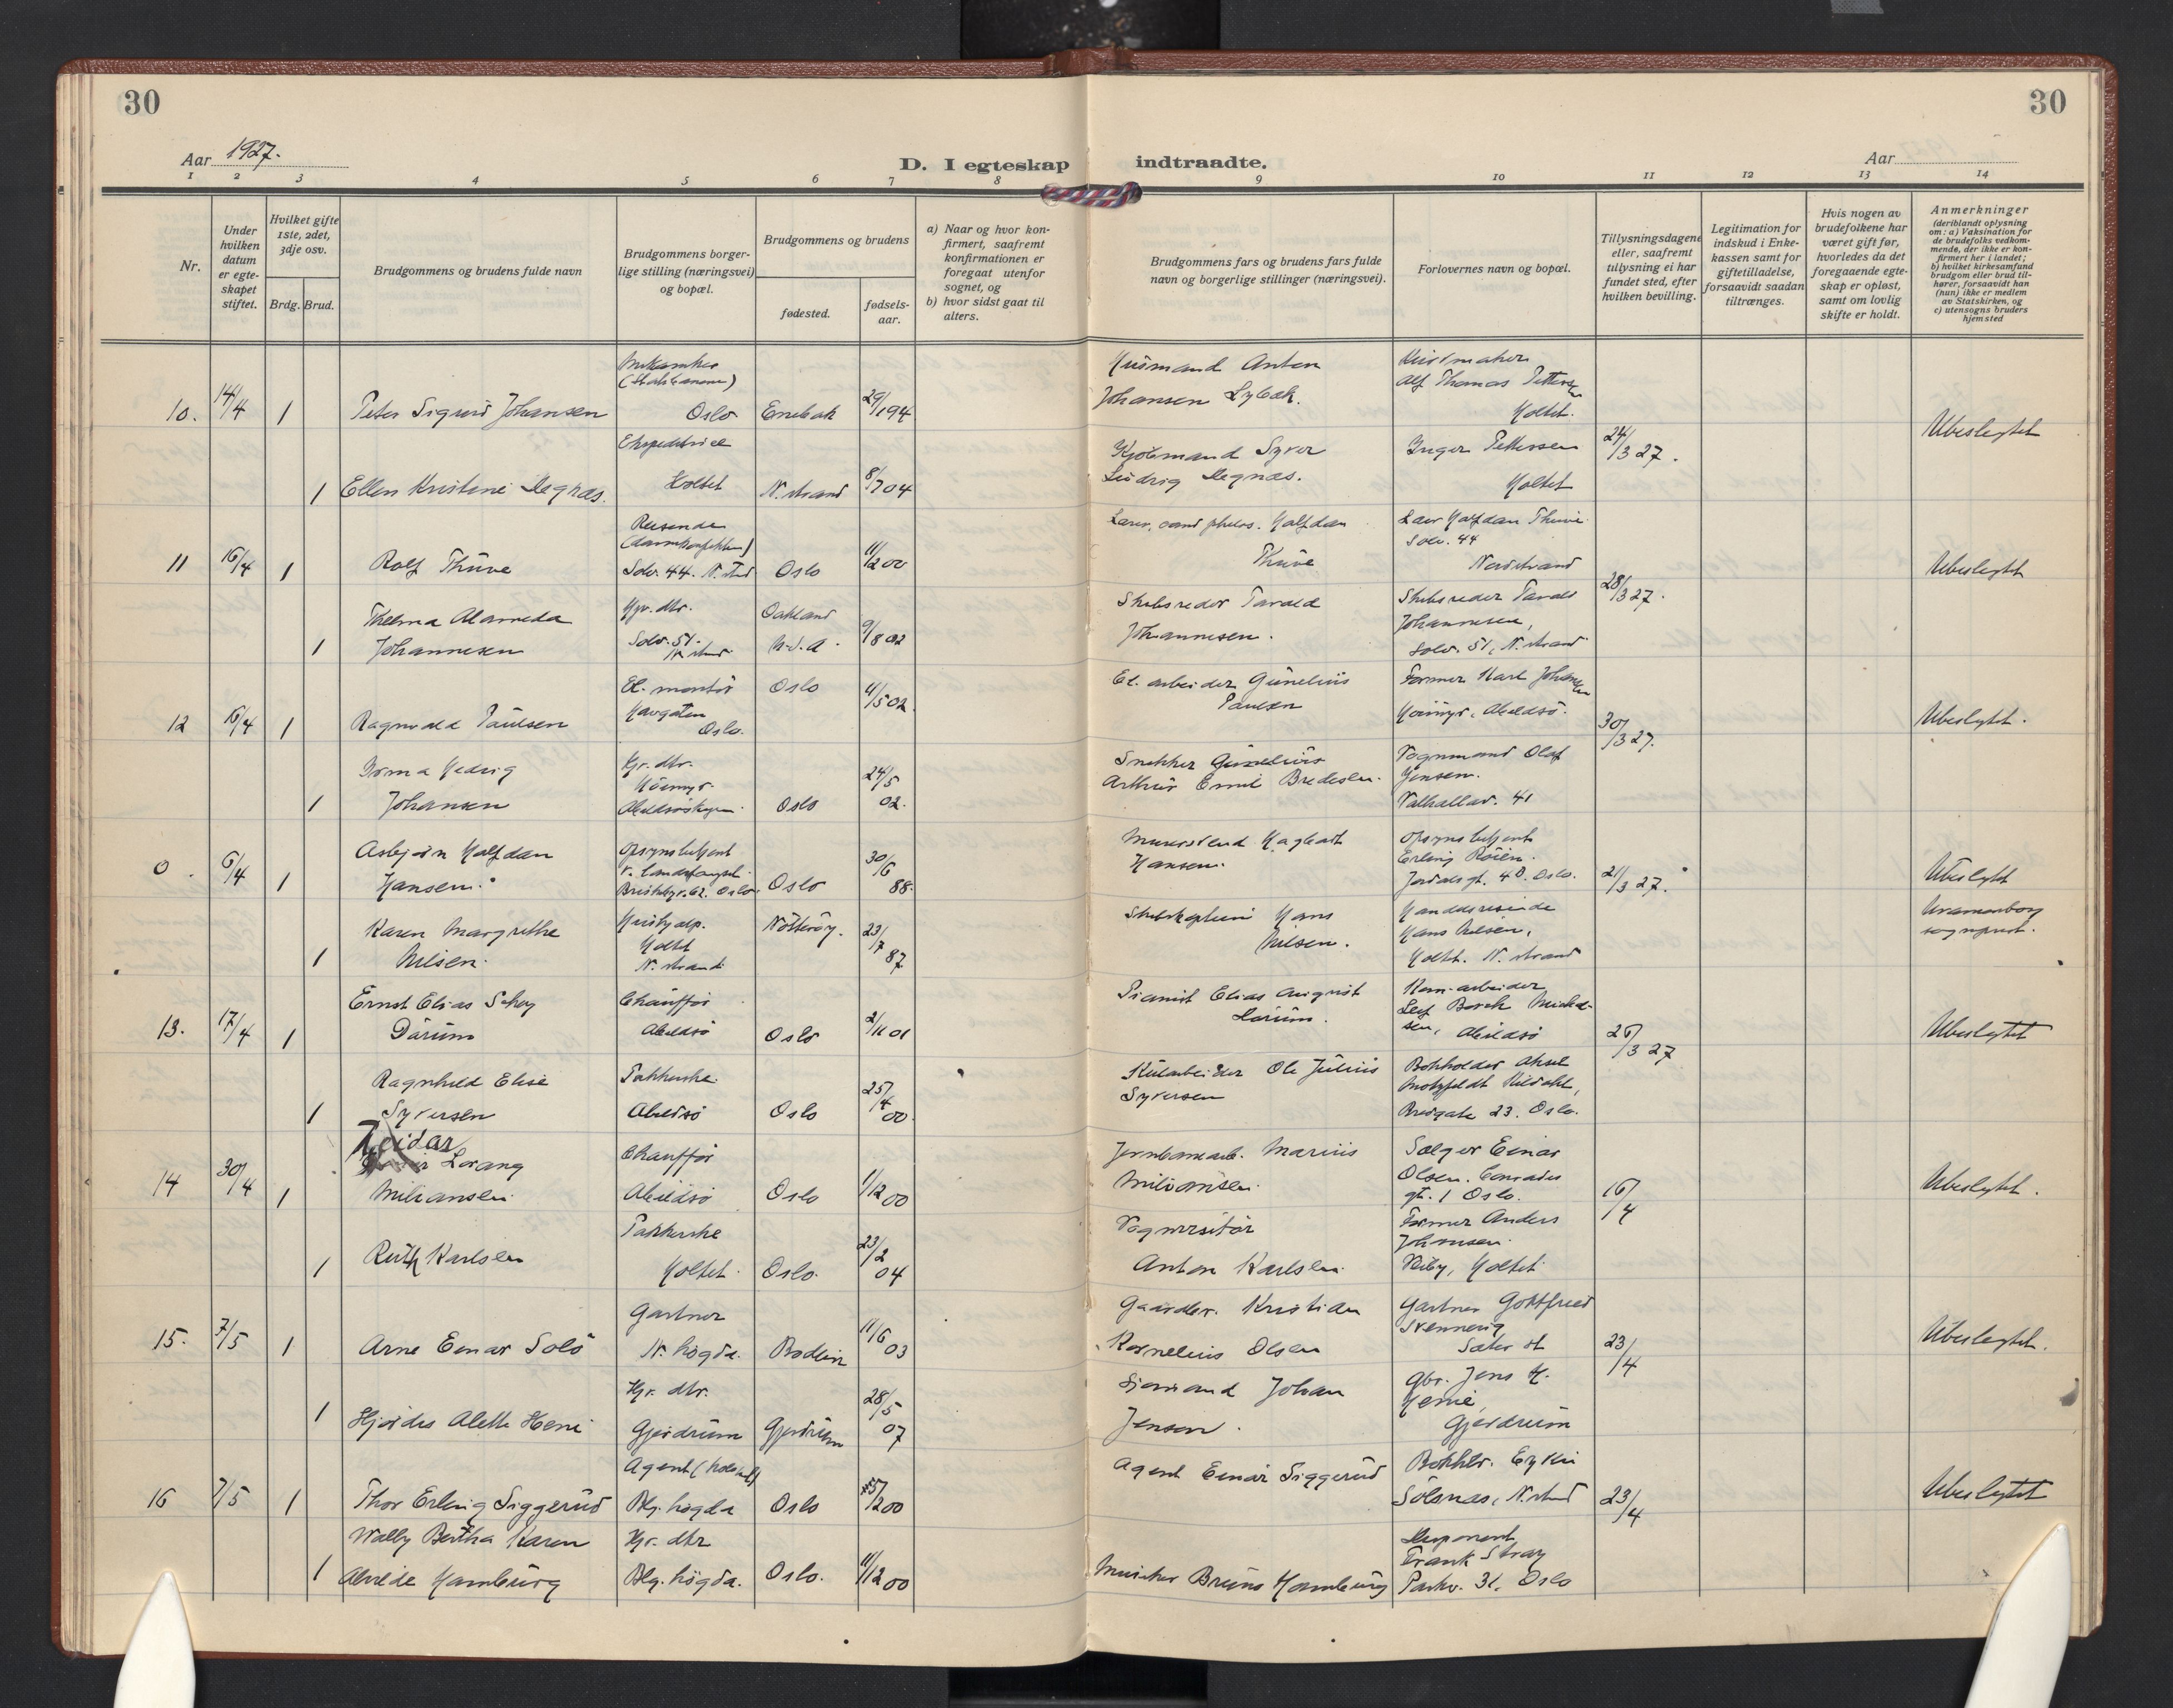 30
30
Aar 1927.
D. I egteskap indtraadte.
Aar
1 2 3 4 5 6 7 8 9 10 11 12 13 14
Nr.
Under hvilken datum er egteskapet stiftet.
Hvilket gifte 1ste, 2det, 3dje osv.
Brdg. Brud.
Brudgommens og brudens fulde navn
Brudgommens borgerlige stilling (næringsvei) og bopæl.
Brudgommens og brudens
fødested.
fødselsaar.
a) Naar og hvor konfirmert, saafremt konfirmationen er foregaat utenfor sognet, og
b) hvor sidst gaat til alters.
Brudgommens fars og brudens fars fulde navn og borgerlige stillinger (næringsvei).
Forlovernes navn og bopæl.
Tillysningsdagene eller, saafremt tillysning ei har fundet sted, efter hvilken bevilling.
Legitimation for indskud i Enkekassen samt for giftetilladelse, forsaavidt saadan tiltrænges.
Hvis nogen av brudefolkene har været gift før, hvorledes da det foregaaende egteskap er opløst, samt om lovlig skifte er holdt.
Anmerkninger
(deriblandt oplysning om: a) Vaksination for de brudefolks vedkommende, der ikke er konfirmert her i landet;
b) hvilket kirkesamfund brudgom eller brud tilhører, forsaavidt han (hun) ikke er medlem av Statskirken, og
c) utensogns bruders hjemsted
10. 14/4 1 Peter Sigurd Johansen
Oslo Enebak 29/1 94
Husmand Anton
Johansen Lybæk.
Alf Thomas Pettersen
Holtet.
Ubeslegtet
1 Ellen Kristine Degnæs.
Ekspeditrice
Holtet N. strand 8/7 04
Kjøbmand Syver
Ludvig Degnæs.
Inger Pettersen
Holtet
24/3 27.
11 16/4 1 Rolf Thüve
Reisende
Solv. 44. N. strd Oslo 11/2 00
Lærer, cand philos. Halfdan
Thüve
Lærer Halfdan Thüve
Solv. 44
Nordstrand
28/3 27.
Ubeslegtet
Thelma Alameda
1 Johannesen
Hjv. dtr.
Solv. 51.
N. strand
Oakland
U.S.A. 9/8 02
Skibsreder Tarald
Johannesen.
Skibsreder Tarald
Johannesen,
Solv. 51, N. strand
12 16/4 1 Ragnvald Paulsen
El. montør
Havgaten
Oslo.
Oslo 4/5 02.
El. arbeider Gunelius
Paulsen
Former Karl Johansen
Høimyr, Abildsø.
30/3 27.
Ubeslegtet.
Irma Hedvig
1 Johansen
Hjv. dtr.
Høimyr
Oslo 24/5 02.
Snekker Gunelius
Arthur Emil Bredesen.
Vognmand Olaf
Jensen.
Valhallav. 41
0. 6/4 1 Asbjørn Halfdan
Hansen.
Opsynsbetjent
v. Landsfængsel
Oslo 30/6 88.
Hansen.
Opsynsbetjent
Erling
Jordalsgt. 4 B. Oslo.
21/3 27.
Ubeslegtet
Uranienborg
sogneprest.
Karen Margrethe
1 Nilsen.
Husbyalp.
Holtet
N. strand
Nøtterøy. 23/7 87
Skibskaptein Hans
Nilsen.
Handelsreisende
Hans Nilsen,
Holtet. N. strand
13. 17/4 1 Ernst Elias Schøy
Dørum
Chauffør
Abildsø Oslo 2/11 01
Pianist Elias August
Dørum.
Kom. arbeider
Leif Borch Mickelsen,
Abildsø
26/3 27
Ubeslegtet
Ragnhild Elise
1 Syversen
Pakkerske
Abildsø Oslo 25/4 00.
Kularbeider Ole Julius
Syversen
Bokholder Aksel
Motzfeldt Kildahl,
Bredgate 23. Oslo.
14 30/4 1 Reidar
Lorang
Miliansen.
Chauffør
Abildsø Oslo 1/12 00
Jernbanearb. Marius
Miliansen.
Sælger Einar
Olsen. Conrads
gt. 1 Oslo.
16/4
Ubeslegtet.
1 Ruth Karlsen
Pakkerske
Holtet. Oslo. 23/2 04
Vognvisitør
Anton Karlsen.
Former Anders
Johansen.
Holtet
15. 7/5 1 Arne Einar Solø
Gartner
N. høgda. Bodin 11/6 03
Gaardbr. Kristian
Kornelius Olsen
Gartner Gottfried
Svennevig
Sæter st
23/4
Ubeslegtet.
1 Hjørdis Alette Henie
Hjv. dtr.
Gjerdrum Gjerdrum 28/5 07
Sjømand Johan
Jensen.
Gbr. Jens H.
Henie,
Gjerdrum
16 7/5 1 Thor Erling Siggerud
Agent
Blg. høgda Oslo 25/1 200
Agent Einar Siggerud
Bokhld.
Solsnæs, N. strand
23/4
Ubeslegtet
Wally Bertha Karen
1 Alvilde Hamburg
Hjv. dtr
Blg. høgda. Oslo. 11/12 00
Musiker Bruno Hamburg
Disponent
Frank Stray
Parkv. 31. Oslo